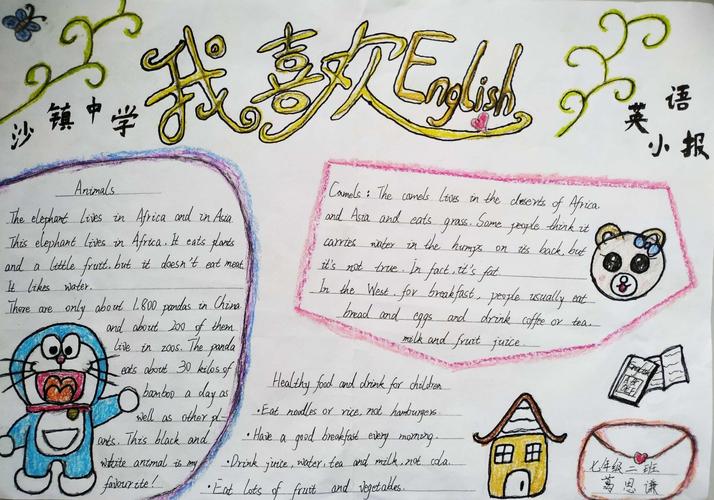 我喜欢English
沙镇中学
英语
小报
Animals
The elephant lives in Africa and in Asia.
This elephant lives in Africa. It eats plants
and a little fruit. but it doesn't eat meat.
It likes water.
There are only about 1.800 pandas in China
and about 200 of them
live in zoos. The panda
eats about 30 kilos of
bamboo a day as
well as other pl-
ants. This black and
white animal is my
favourite!
Camels: The camels lives in the deserts of Africa.
and Asia and eats grass. Some people think it
carries water in the humps on its back, but
it's not true. In fact, it's fat
In the West, for breakfast, people usually eat
bread and eggs and drink coffee or tea.
milk and fruit juice
Healthy food and drink for children
·Eat noodles or rice, not hamburgers.
·Have a good breakfast every morning.
·Drink juice, water, tea and milk, not cola.
·Eat lots of fruit and vegetables.
English
七年级二班
葛思谦